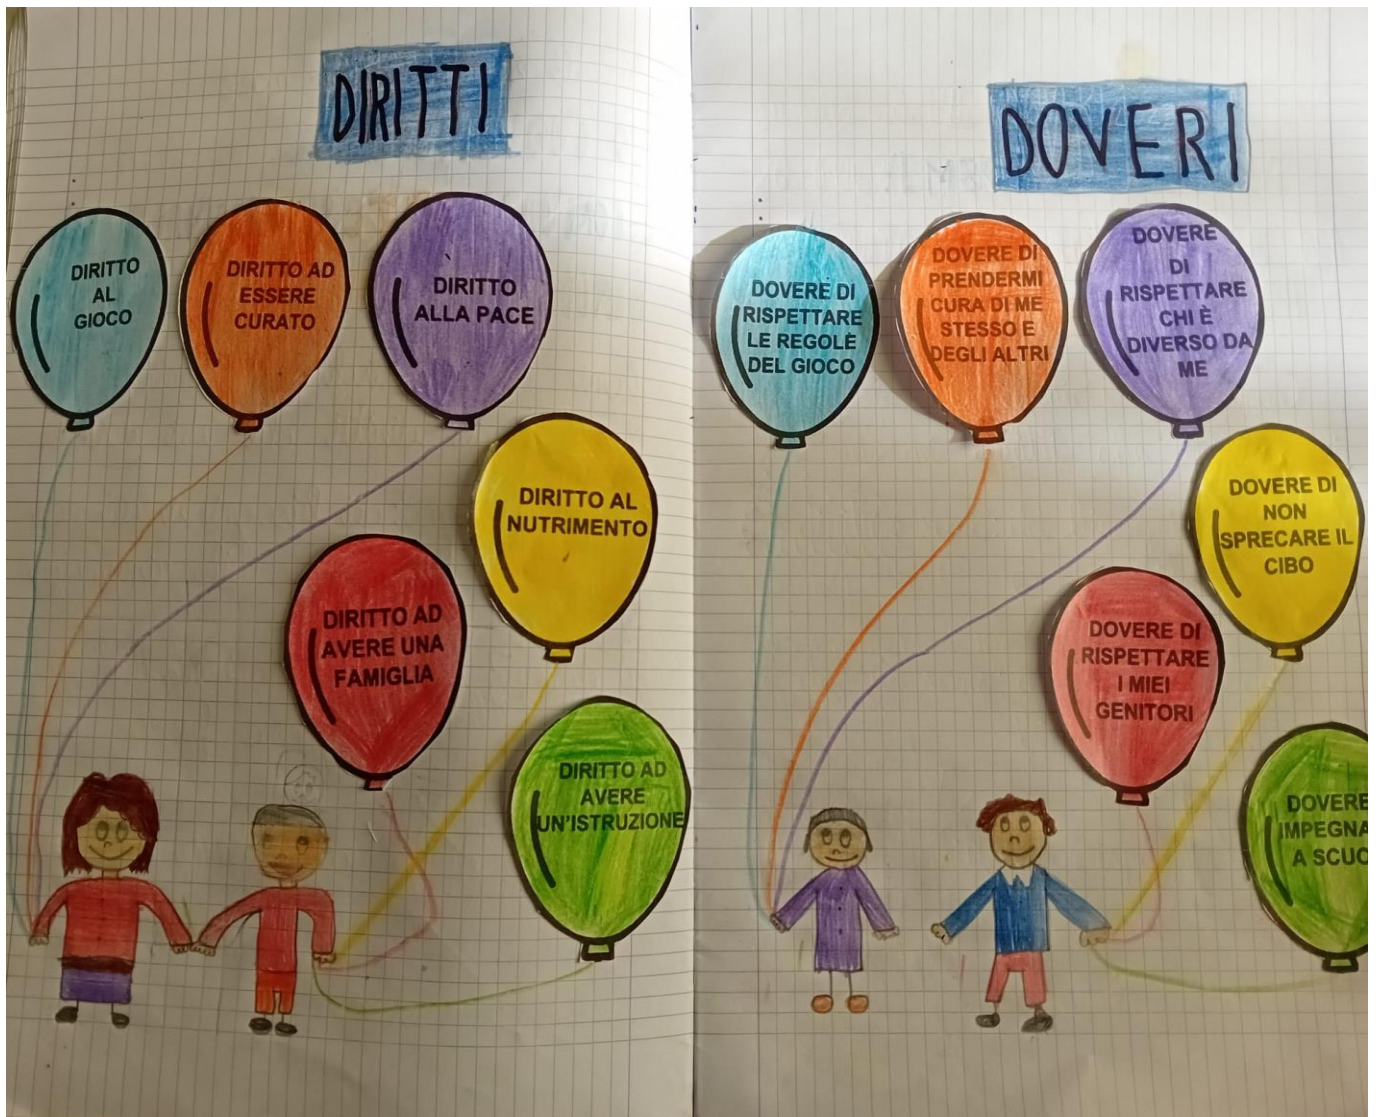 DIRITTI
DIRITTO
AL
GIOCO
DIRITTO AD
ESSERE
CURATO
DIRITTO
ALLA PACE
DIRITTO AL
NUTRIMENTO
DIRITTO AD
AVERE UNA
FAMIGLIA
DIRITTO AD
AVERE
UN'ISTRUZIONE
DOVERI
DOVERE DI
RISPETTARE
LE REGOLE
DEL GIOCO
DOVERE DI
PRENDERMI
CURA DI ME
STESSO E
DEGLI ALTRI
DOVERE
DI
RISPETTARE
CHI È
DIVERSO DA
ME
DOVERE DI
NON
SPRECARE IL
CIBO
DOVERE DI
RISPETTARE
I MIEI
GENITORI
DOVERE
IMPEGNA
A SCUO